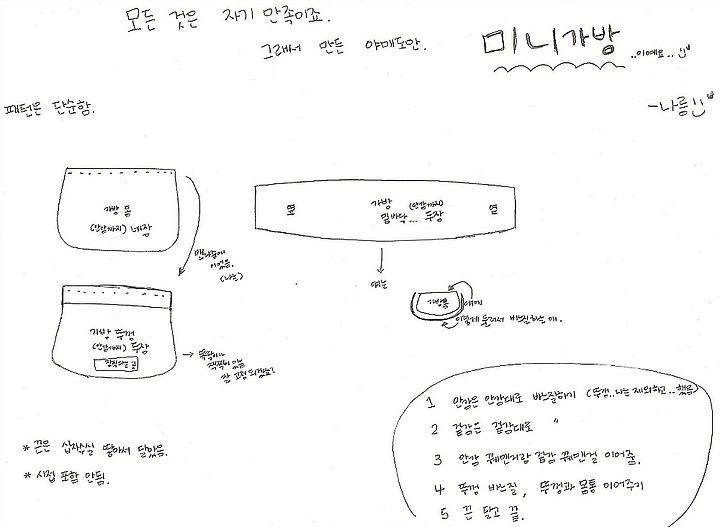 모든 것은 자기 만족이죠.
그래서 만든 야매도안.
미니가방
..이예요..
패턴은 단순함.
-나름
가방 몸
(안감까지) 네장
맨나중에
이었음.
(나는)
가방 뚜껑
(안감까지) 두장
옆
가방 (안감까지)
밑바닥... 두장
옆
얘는
가방몸
얘에
이렇게 둘러서 바느질하는 애.
* 끈은 십자수실 땋아서 달았음.
* 시접 포함 안됨.
1 안감은 안감대로 바느질하기 (뚜껑..나는 제외하고..했음)
2 겉감은 겉감대로 "
3 안감 꿰맨거랑 겉감 꿰맨걸 이어줌.
4 뚜껑 바느질, 뚜껑과 몸통 이어주기
5 끈 달고 끝.